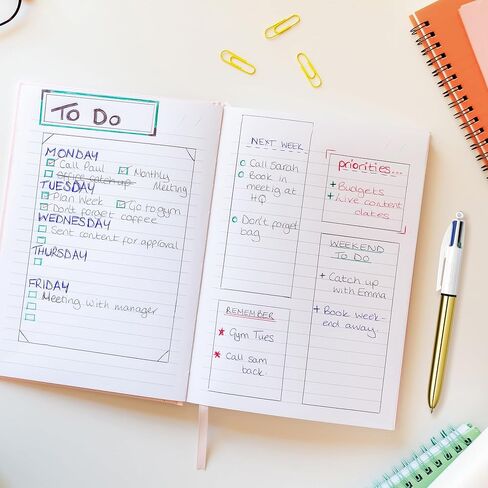 To Do
MONDAY
Call Paul Monthly
Office catch up Meeting
TUESDAY
Plan Week Go to gym
Don't forget coffee
WEDNESDAY
Sent content for approval
THURSDAY
FRIDAY
Meeting with manager
NEXT WEEK
Call Sarah
Book in
meetig at
HQ
Don't forget
bag
REMEMBER
Gym Tues
Call sam
back.
priorities...
Budgets
Live content
dates
WEEKEND
TO DO
Catch up
with Emma
Book week-
end away.